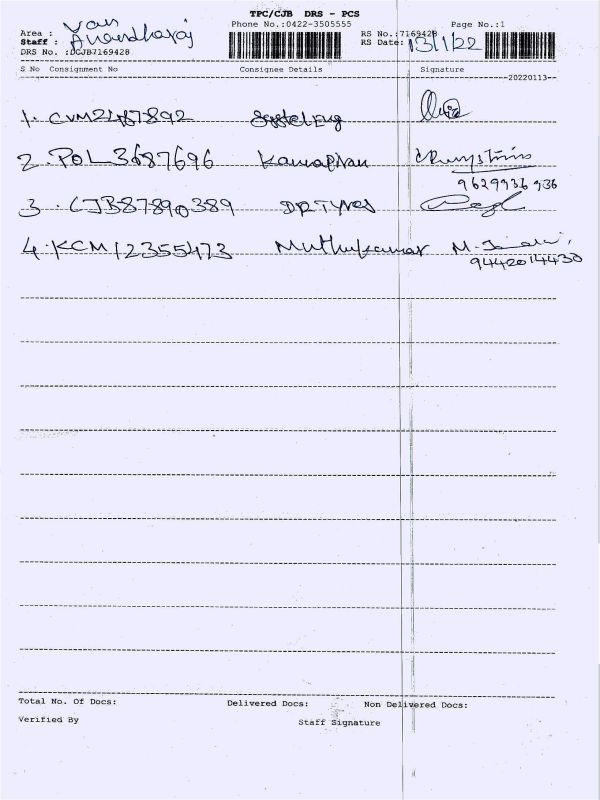 TPC/CJB DRS - PCS
Phone No.:0422-3505555 Page No.:1
Area : Van
Staff : Anandharaj
RS No.:7169428
RS Date: 13/1/22
DRS No. :DCJB7169428
S No Consignment No Consignee Details Signature
20220113
1. CVM2487892
2. POL3687696
9629936936
3. CJB87890389 DR Tyres
4. KCM12355473 Muthukumar
9442014430
Total No. Of Docs: Delivered Docs: Non Delivered Docs:
Verified By Staff Signature